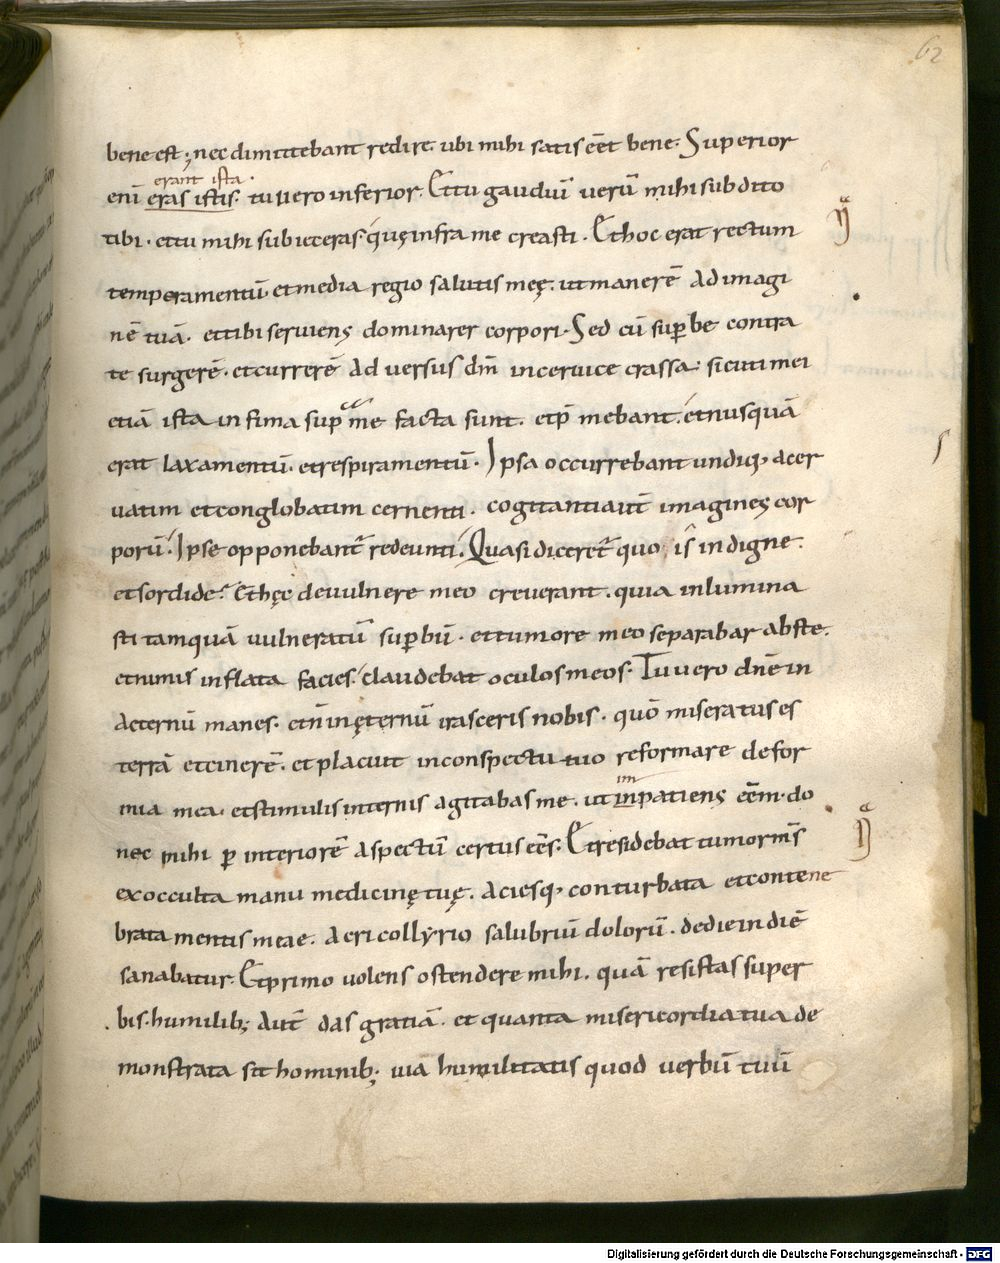 62
bene est; nec dimittebant redire. ubi mihi satis eēt bene. Superior
erant ista.
enī eras istis. tu vero inferior. Et tu gaudiū verū mihi subdito
tibi. et tu mihi subieceras. quę infra me creasti. Et hoc erat rectum
temperamentū. et media regio salutis meę. ut manerē ad imagi
nē tuā. et tibi serviens dominarer corpori. Sed cū sup̄be contra
te surgerē. et currerē adversus dn̄m in cervice crassa. scuti mei
etiā ista infima sup̄ me facta sunt. et p̄mebant. et nusquā
erat laxamentū. et respiramentū. Ipsa occurrebant undiq; acer
vatim et conglobatim cernenti. cogitanti aūt imagines cor
porū. Ipse opponebant̄ redeunti. Quasi diceret̄ quo is indigne.
et sordide. Et hęc de vulnere meo creverant. quia inlumina
sti tamquā vulneratū sup̄bū. et tumore meo separabar abste.
et nimis inflata facies. claudebat oculos meos. Tu vero dn̄e in
aeternū manes. et n̄ in ęternū irasceris nobis. quō miseratus es
terrā et cinerē. et placuit in conspectu tuo reformare defor
im
mia mea. et stimulis internis agitabas me. ut inpatiens eēm. do
nec mihi p̄ interiorē aspectū certus eēs. Et residebat tumor m̄s
ex occulta manu medicinę tuę. aciesq; conturbata et contene
brata mentis meae. acri collyrio salubriū dolorū. de die in diē
sanabatur. Et primo volens ostendere mihi. quā resistas super
bis. humilib; aūt das gratiā. et quanta misericordia tua de
monstrata sit hominib; via humilitatis quod verbū tuū
Digitalisierung gefördert durch die Deutsche Forschungsgemeinschaft - DFG